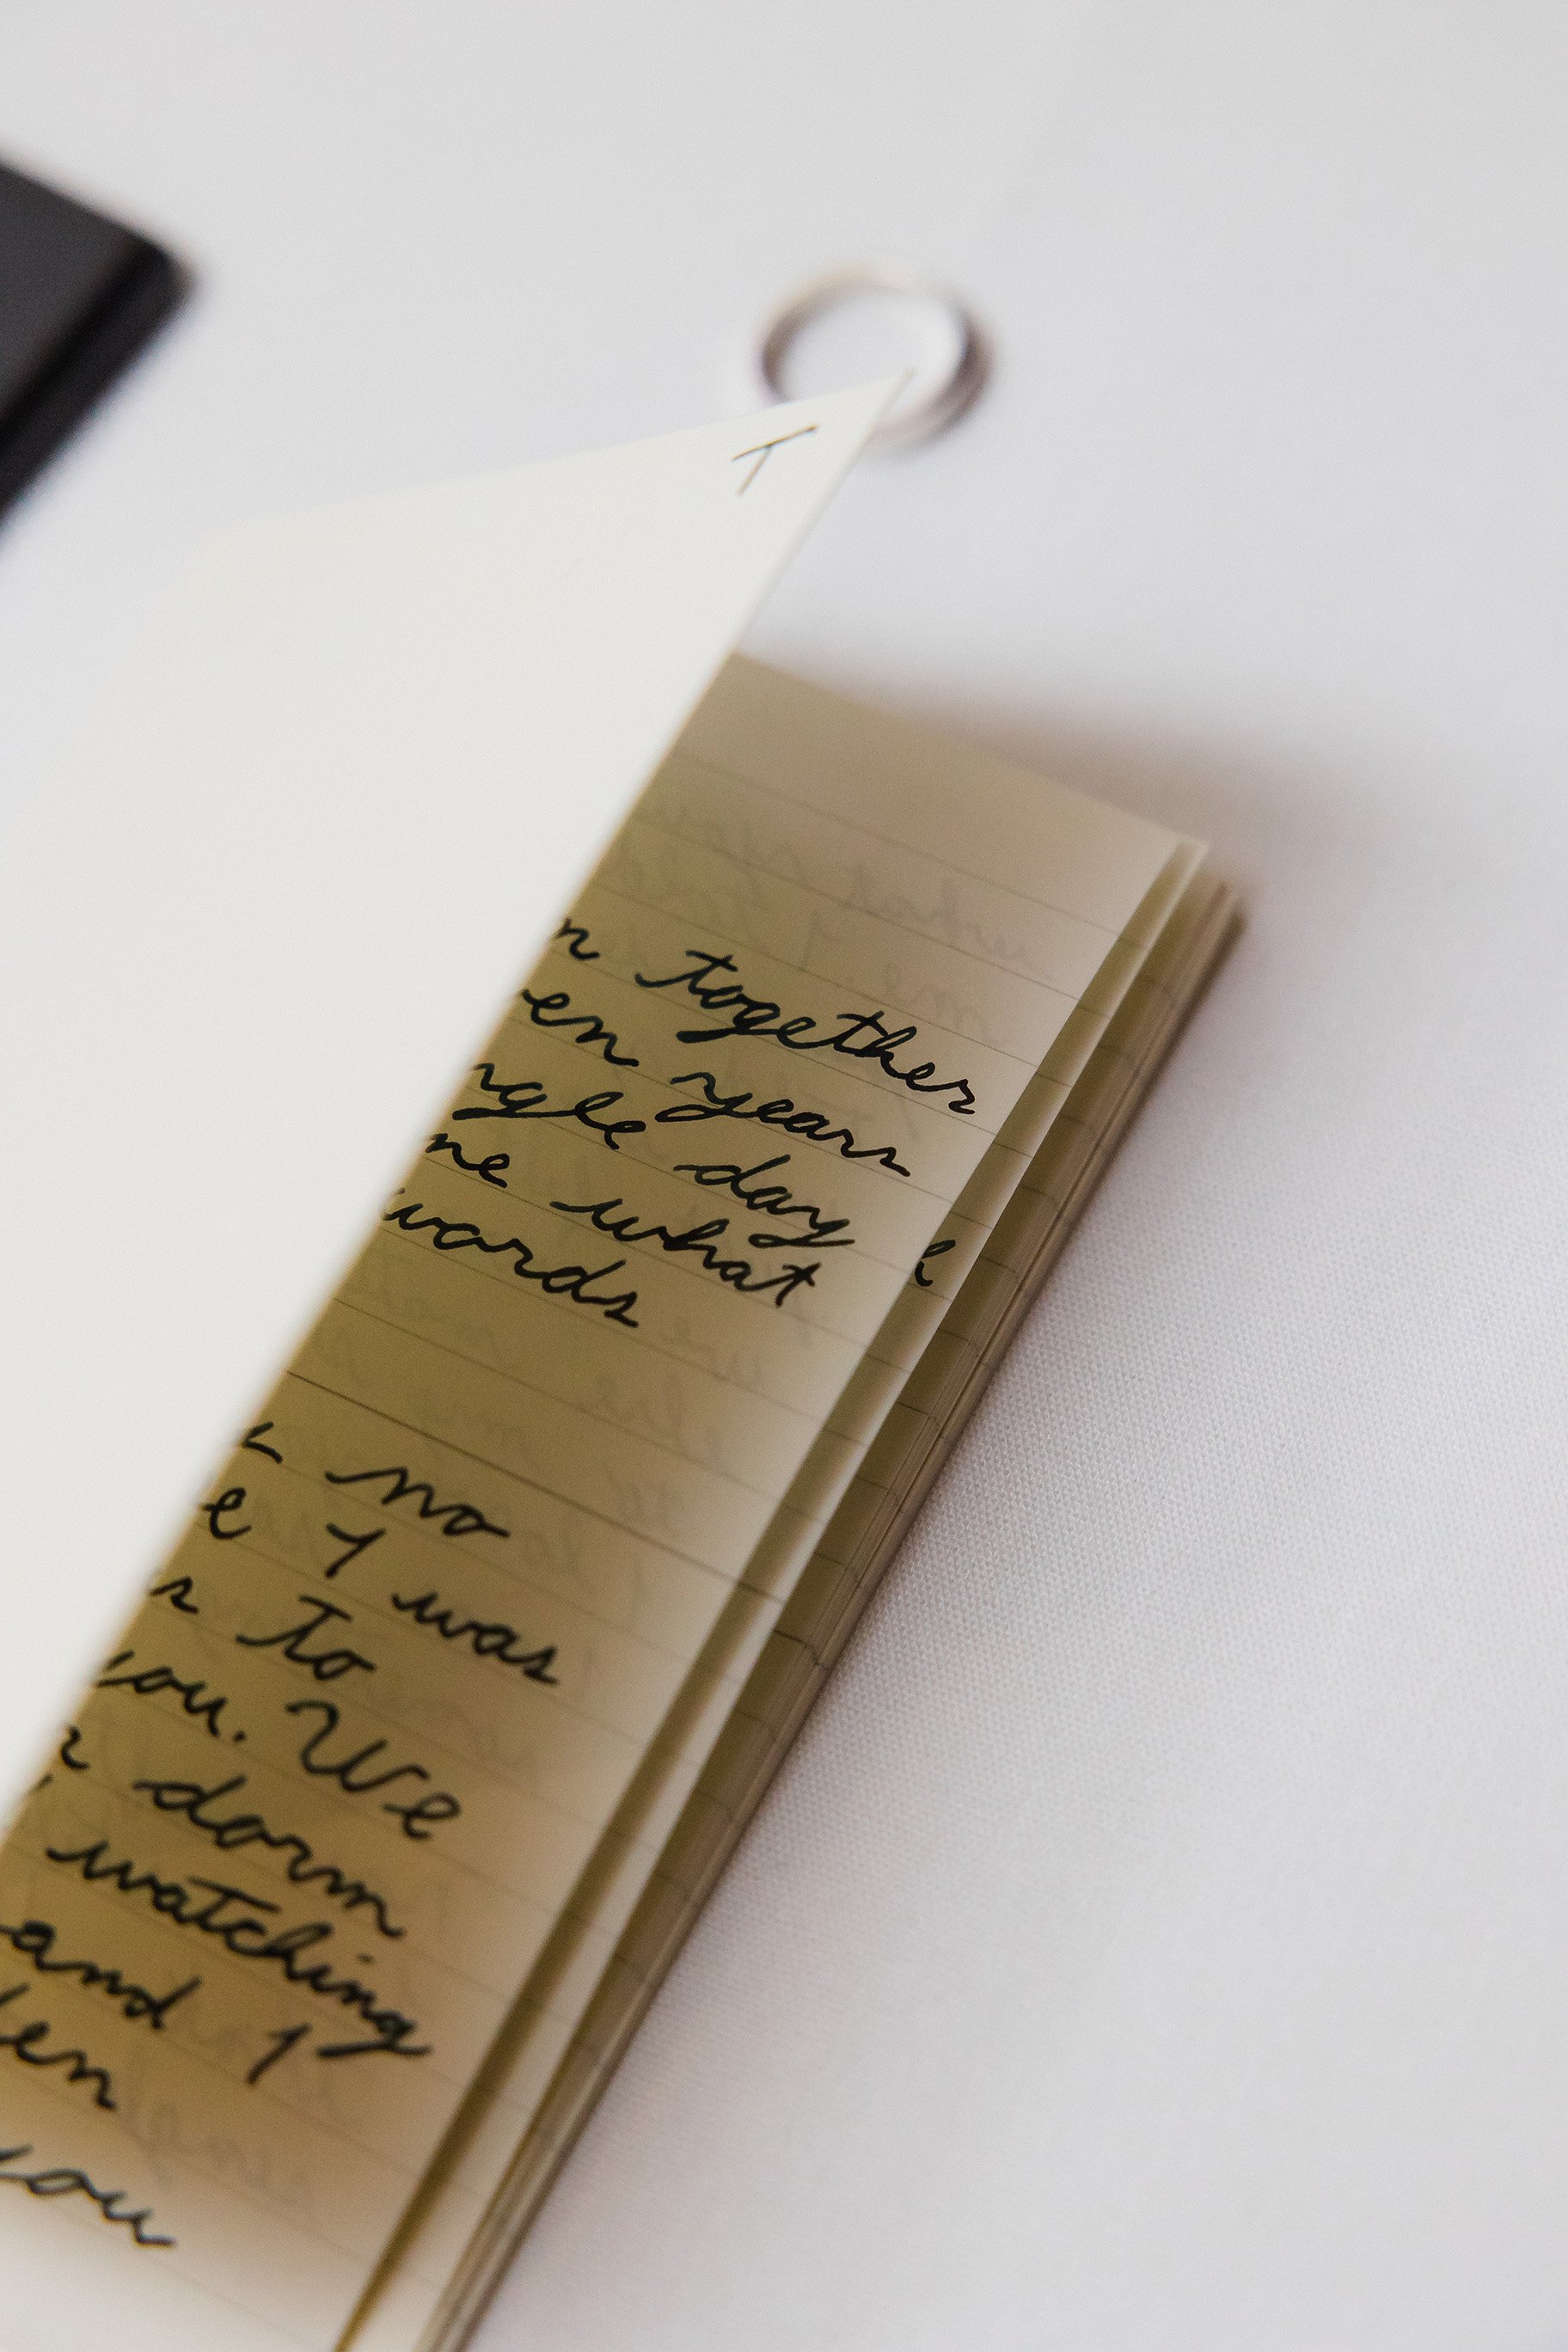 n together
en years
ngle day
ne what
words
no
e I was
r to
you. We
r dorm
watching
and I
en
you